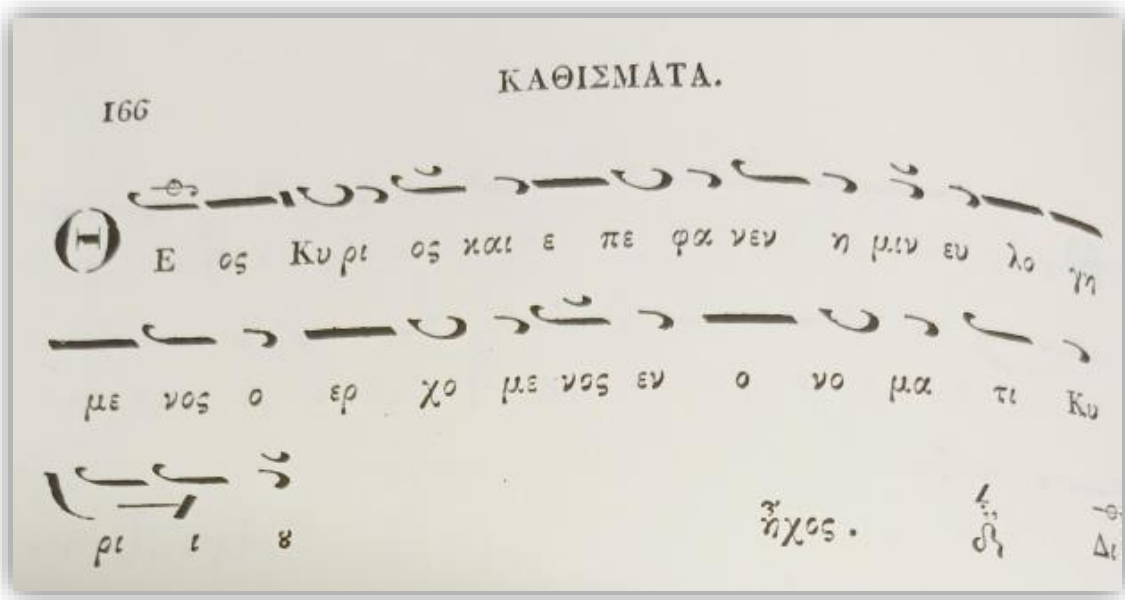 166
ΚΑΘΙΣΜΑΤΑ.
Θ Ε ος Κυ ρι ος και ε πε φα νεν η μιν ευ λο γη
με νος ο ερ χο με νος εν ο νο μα τι Κυ
ρι ι ȣ
ἦχος . Δι